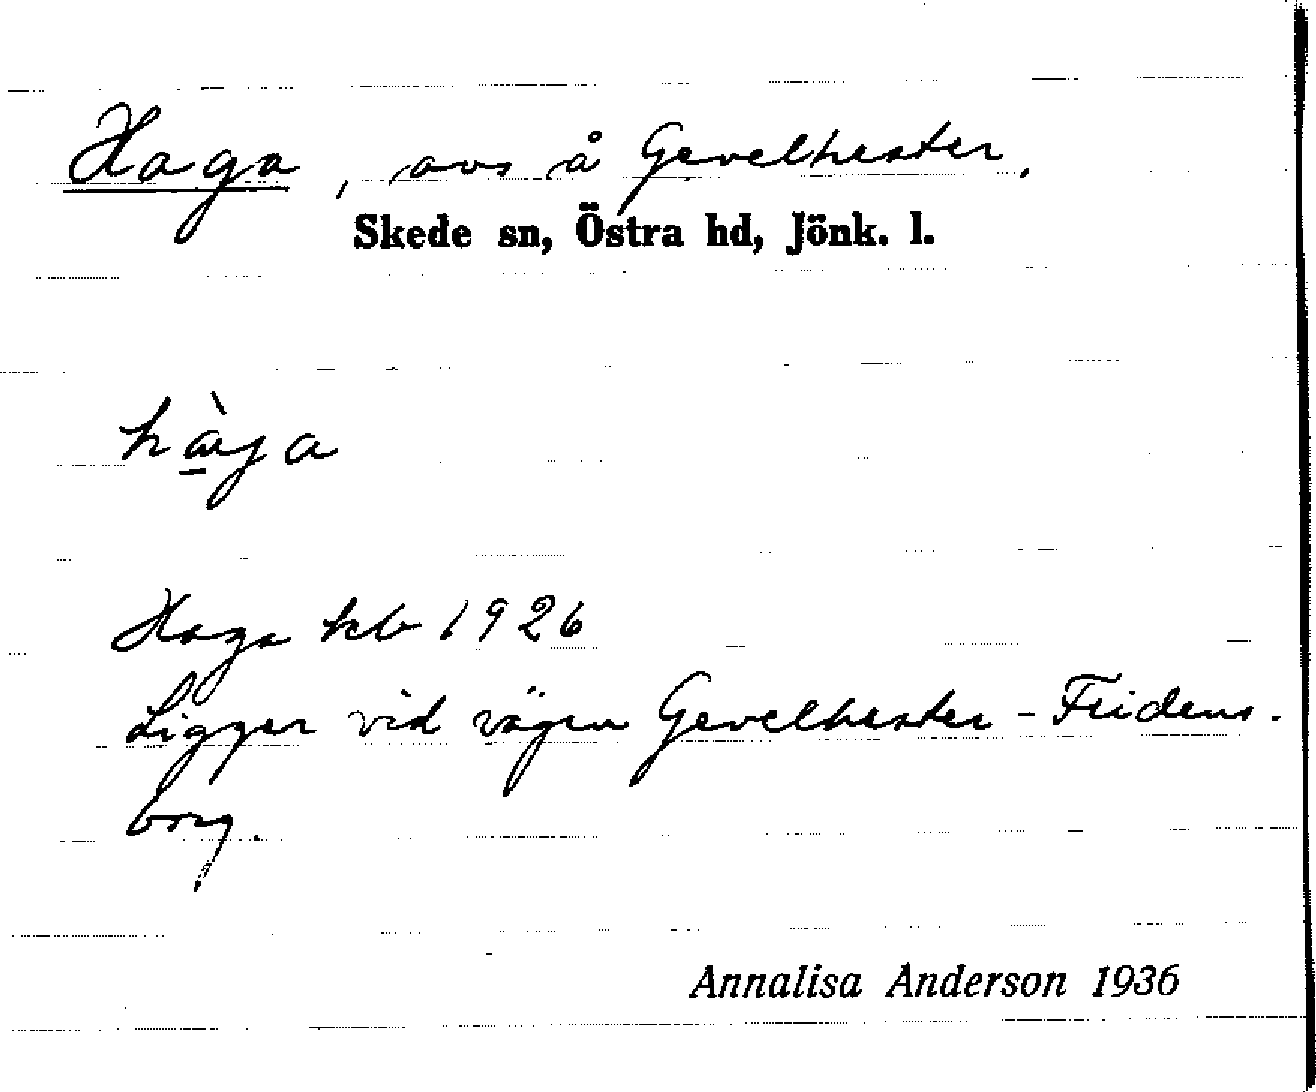 Haga, avs å Gevelhester.
Skede sn, Östra hd, Jönk. l.
hàga
Haga kb 1926
Ligger vid vägen Gevelhester - Fridens-
borg.
Annalisa Anderson 1936